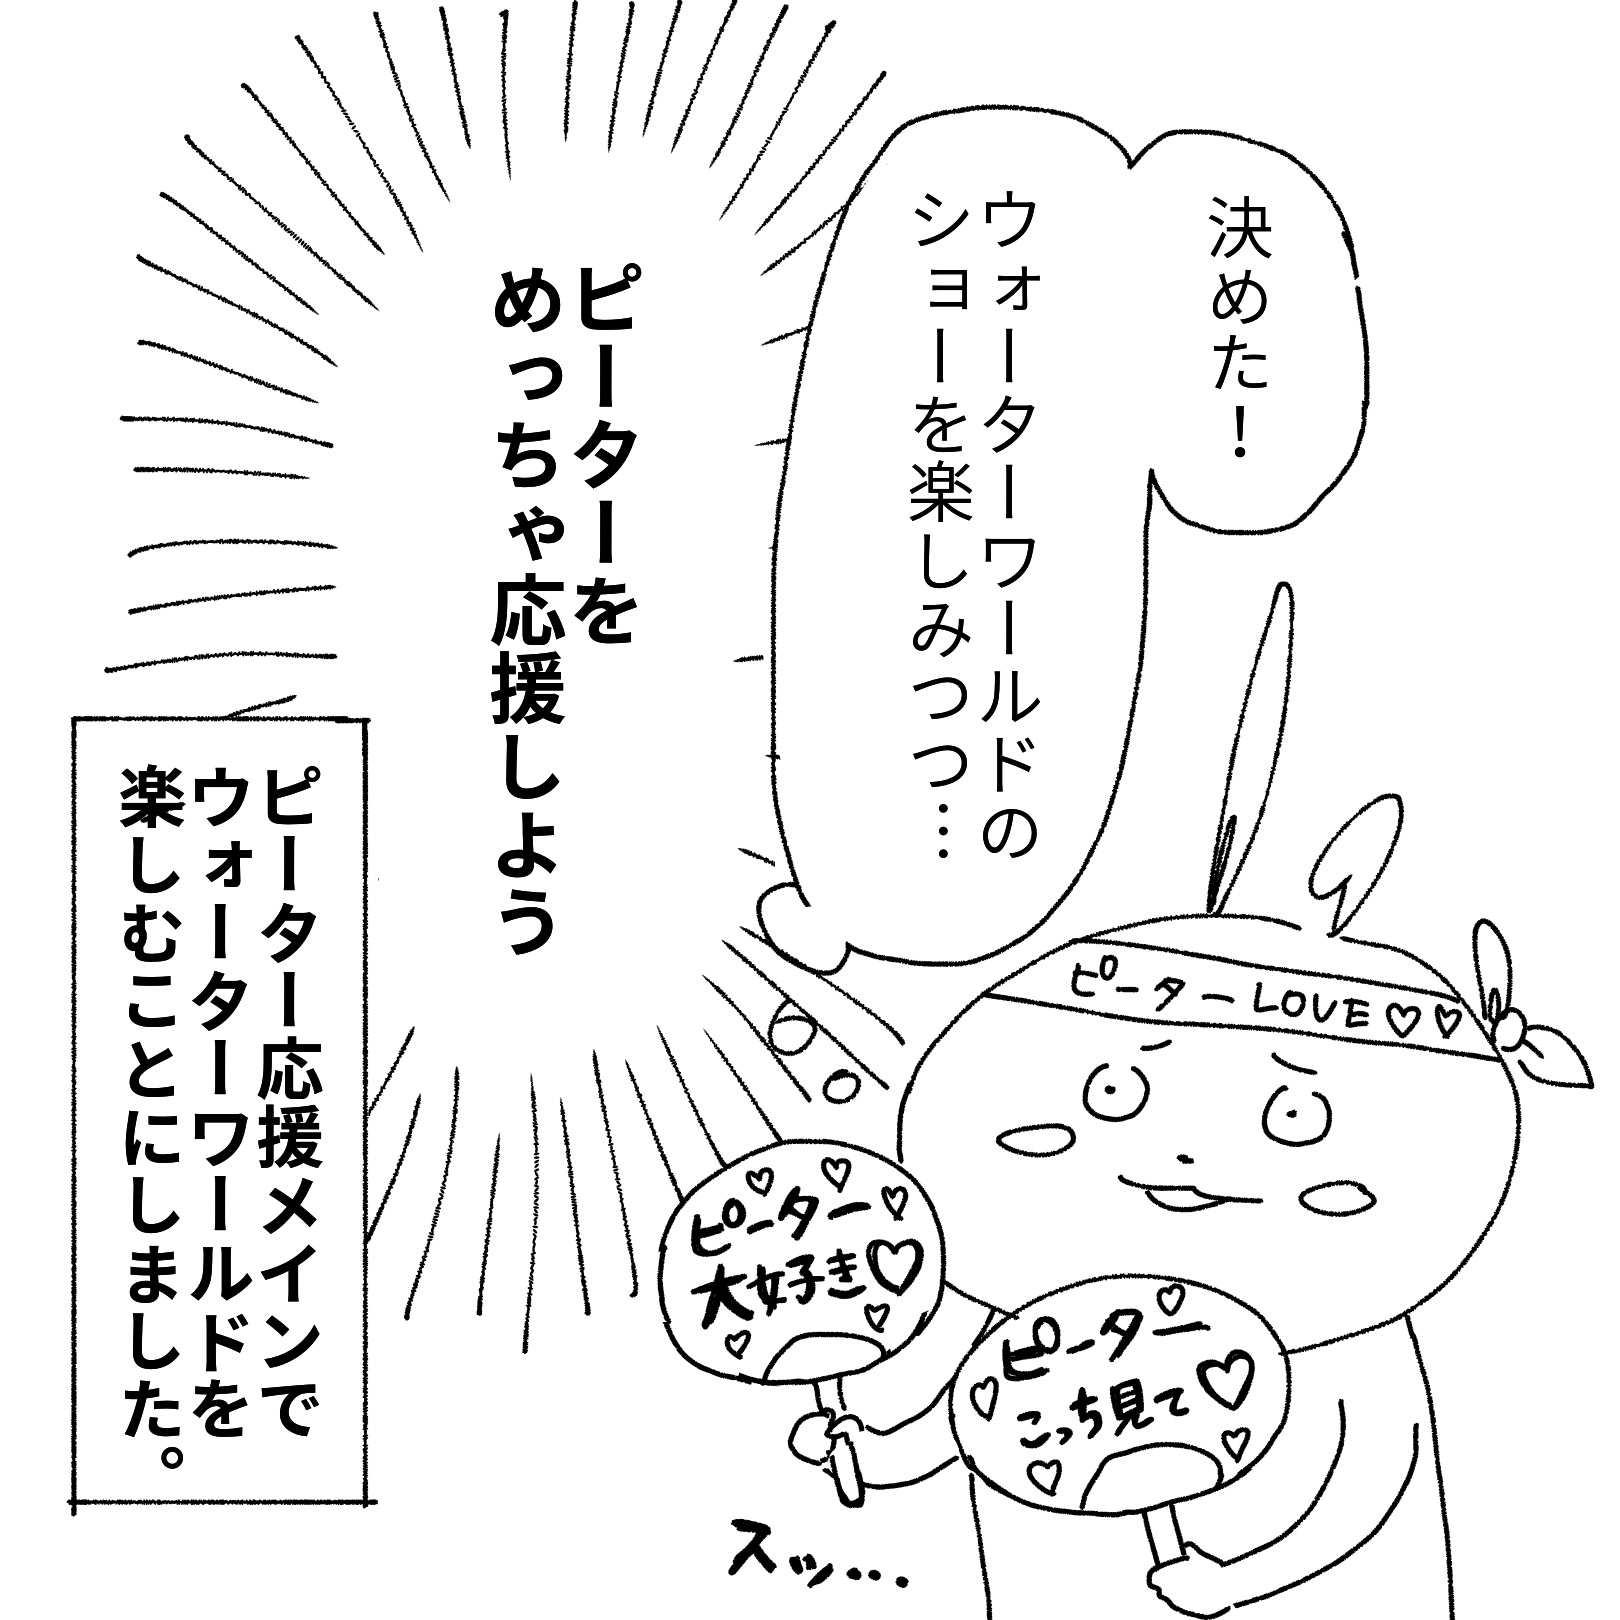 決めた！
ウォーターワールドの
ショーを楽しみつつ…
ピーターを
めっちゃ応援しよう
ピーターLOVE♡♡
ピーター
大好き♡
ピーター
こっち見て♡
スッ…
ピーター応援メインで
ウォーターワールドを
楽しむことにしました。